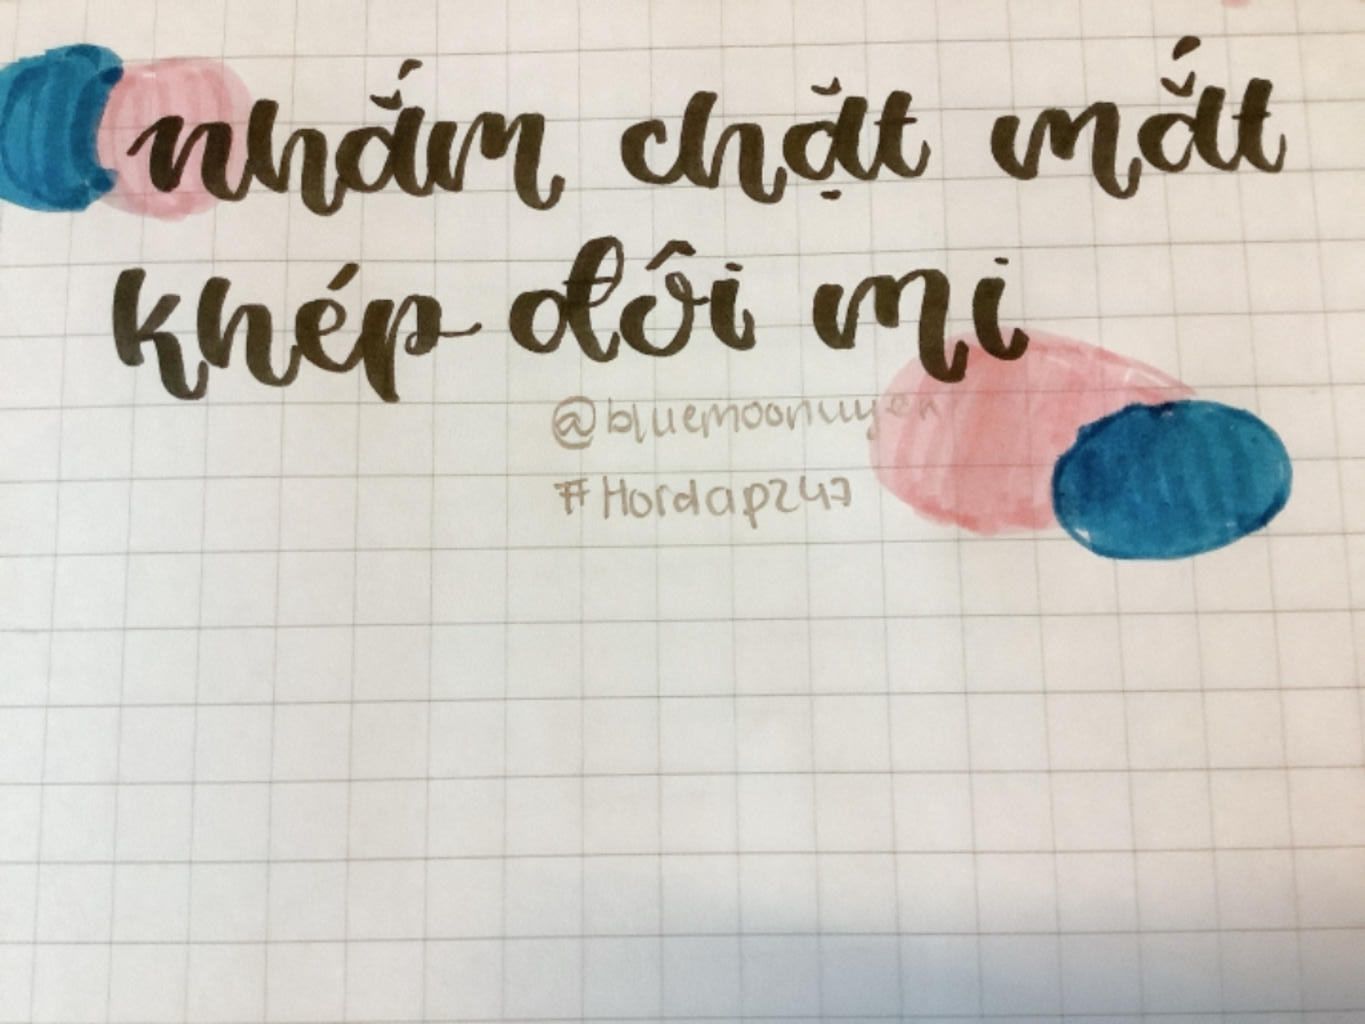 nhắm chặt mắt
khép đôi mi
@bluemoonuyen
#Hordap247